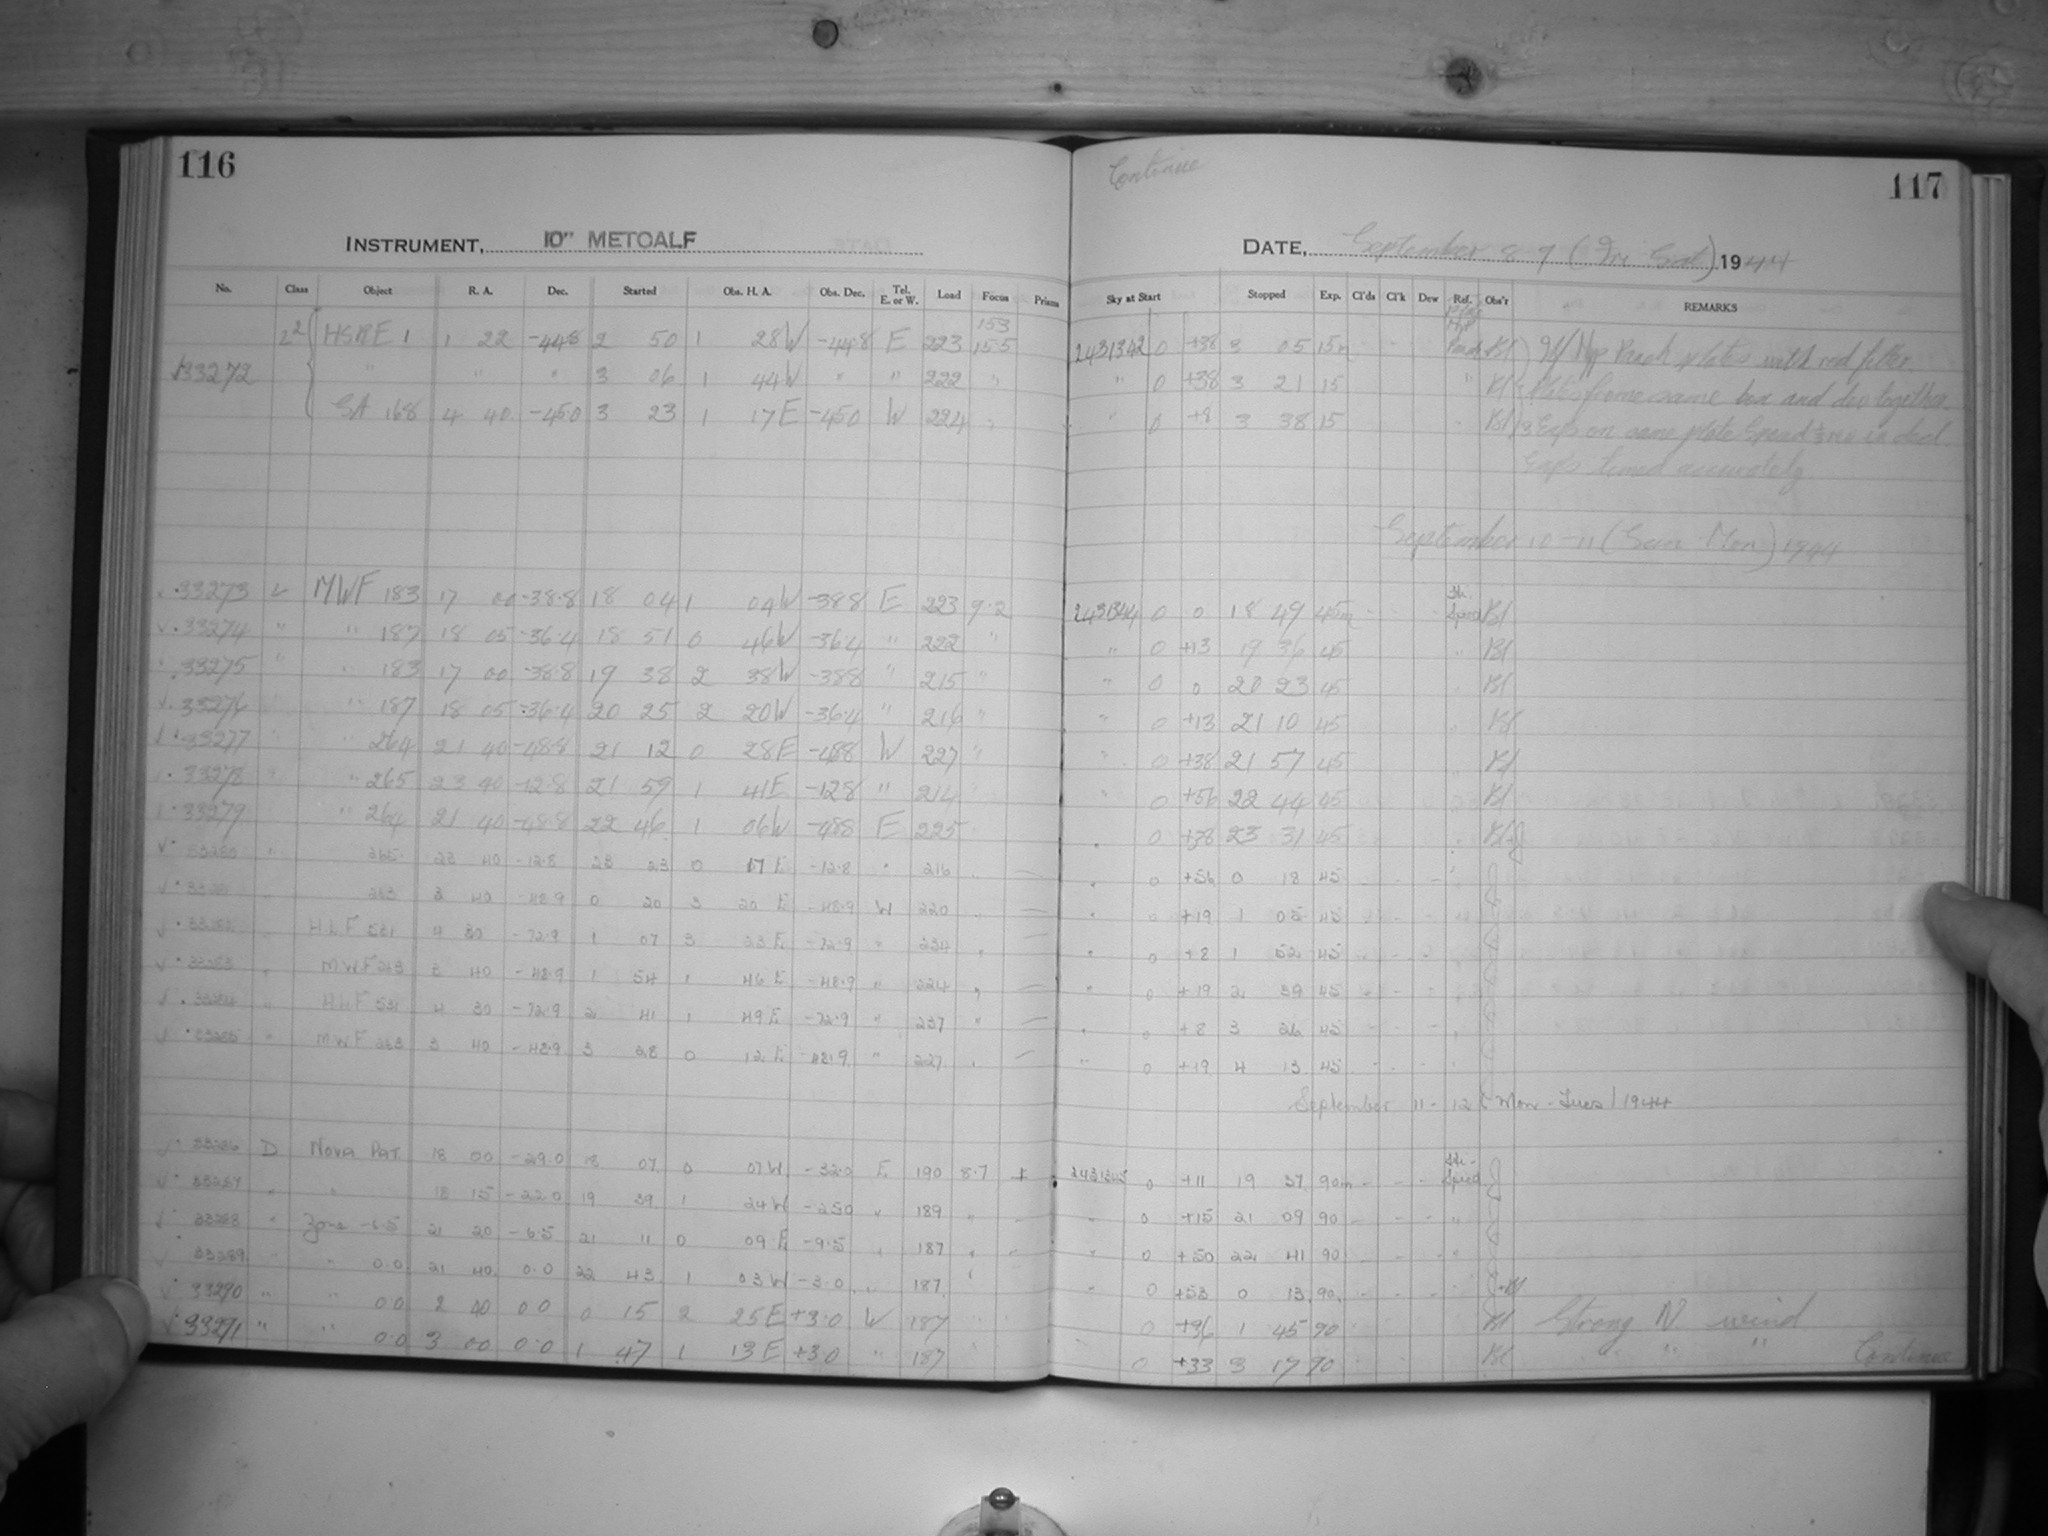 116
INSTRUMENT, 10" METCALF
No. Class Object R. A. Dec. Started Obs. H. A. Obs. Dec. Tel. E. or W. Load Focus Prisms
HSRE 1 1 22 -44.8 2 50 1 28 W -44.8 E 223 15.5
33272 " " " 3 06 1 44 W " " 222 "
SA 168 4 40 -45.0 3 23 1 17 E -45.0 W 224 "
33273 L MWF 183 17 00 -38.8 18 04 1 04 W -38.8 E 223 9.2
33274 " " 187 18 05 -36.4 18 51 0 46 W -36.4 " 222 "
33275 " " 183 17 00 -38.8 19 38 2 38 W -38.8 " 215 "
33276 " 187 18 05 -36.4 20 25 2 20 W -36.4 " 216 "
33277 " 264 21 40 -48.8 21 12 0 28 E -48.8 W 227 "
33278 " 265 23 40 -12.8 21 59 1 41 E -12.8 " 214
33279 " 264 21 40 -48.8 22 46 1 06 W -48.8 E 225
33280 " 265 23 40 -12.8 23 33 0 17 E -12.8 " 216
33281 263 3 40 -48.9 0 20 3 20 E -48.9 W 220
33282 HLF 531 4 30 -72.9 1 07 3 23 E -72.9 " 234
33283 MWF 263 3 40 -48.9 1 54 1 46 E -48.9 " 224
33284 HLF 531 4 30 -72.9 2 41 1 49 E -72.9 " 237
33285 " MWF 263 3 40 -48.9 3 28 0 12 E -48.9 " 227
33286 D Nova Pat. 18 00 -29.0 18 07 0 07 W -32.0 E 190 8.7
33287 " " 18 15 -22.0 19 39 1 24 W -25.0 " 189 "
33288 " Zone -6.5 21 20 -6.5 21 11 0 09 E -9.5 " 187 " "
33289 " 0.0 21 40 0.0 22 43 1 03 W -3.0 " 187 "
33290 " " 0.0 2 40 0.0 0 15 2 25 E +3.0 W 187
33291 " " 0.0 3 00 0.0 1 47 1 13 E +3.0 " 187
Continue
117
DATE, September 8-9 (Fri-Sat) 1944
Sky at Start Stopped Exp. Cl'ds Cl'k Dew Ref. Obs'r REMARKS
2431342 0 +38 3 05 15m Bl
" 0 +38 3 21 15 " Bl Plates from same box and dev together.
" 0 +8 3 38 15 " Bl 3 Exps on same plate
Exps timed accurately
September 10-11 (Sun-Mon) 1944
2431344 0 0 18 49 45m Speed Bl
" 0 +13 19 36 45 " Bl
" 0 0 20 23 45 Bl
" 0 +13 21 10 45 Bl
" 0 +38 21 57 45 Bl
" 0 +56 22 44 45 Bl
" 0 +38 23 31 45 Bl
" 0 +56 0 18 45
" 0 +19 1 05 45
" 0 +8 1 52 45
" 0 +19 2 39 45
" 0 +8 3 26 45
" 0 +19 4 13 45
September 11-12 (Mon-Tues) 1944
2431345 0 +11 19 37 90m Speed
" 0 +15 21 09 90 "
" 0 +50 22 41 90 "
" 0 +53 0 13 90
0 +36 1 45 90 Bl Strong N. wind
0 +33 3 17 90 Bl " " "
Continue